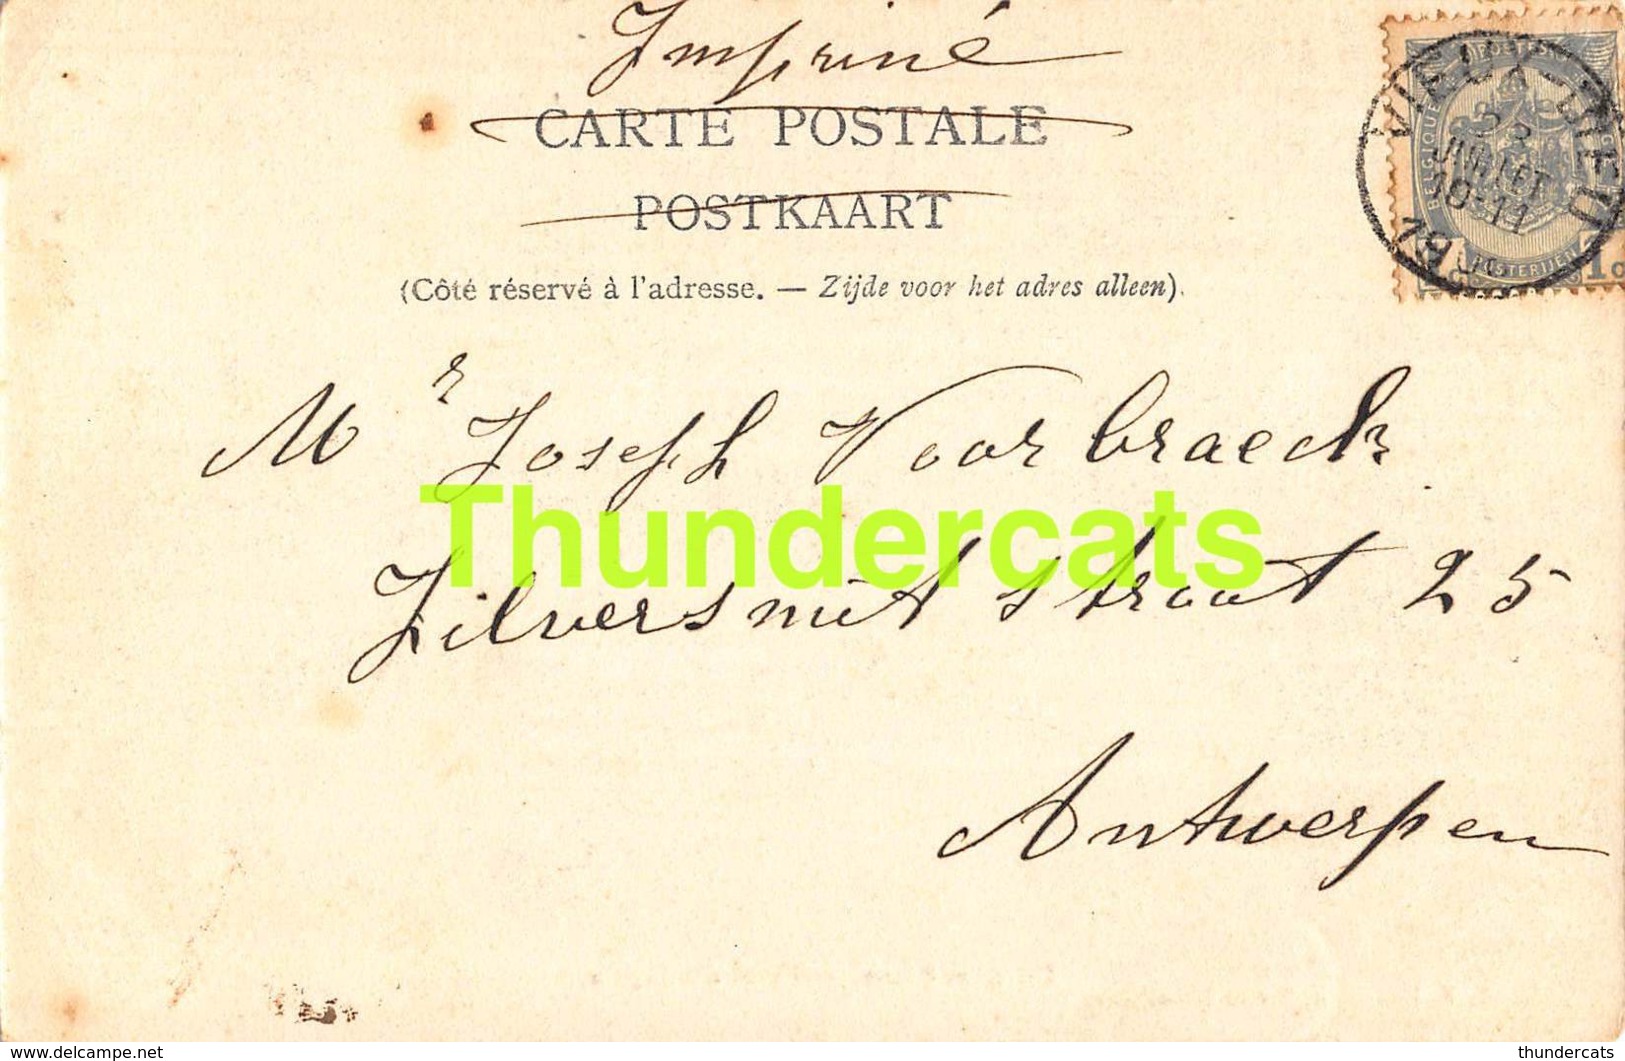 Imprimé
CARTE POSTALE
POSTKAART
(Côté réservé à l'adresse. — Zijde voor het adres alleen).
VIEUX-DIEU
JUILLET
10-11
BELGIQUE
POSTERIJEN
Mr Joseph Voorbraeck
Thundercats
Zilversmit straat 25
Antwerpen
www.delcampe.net
thundercats